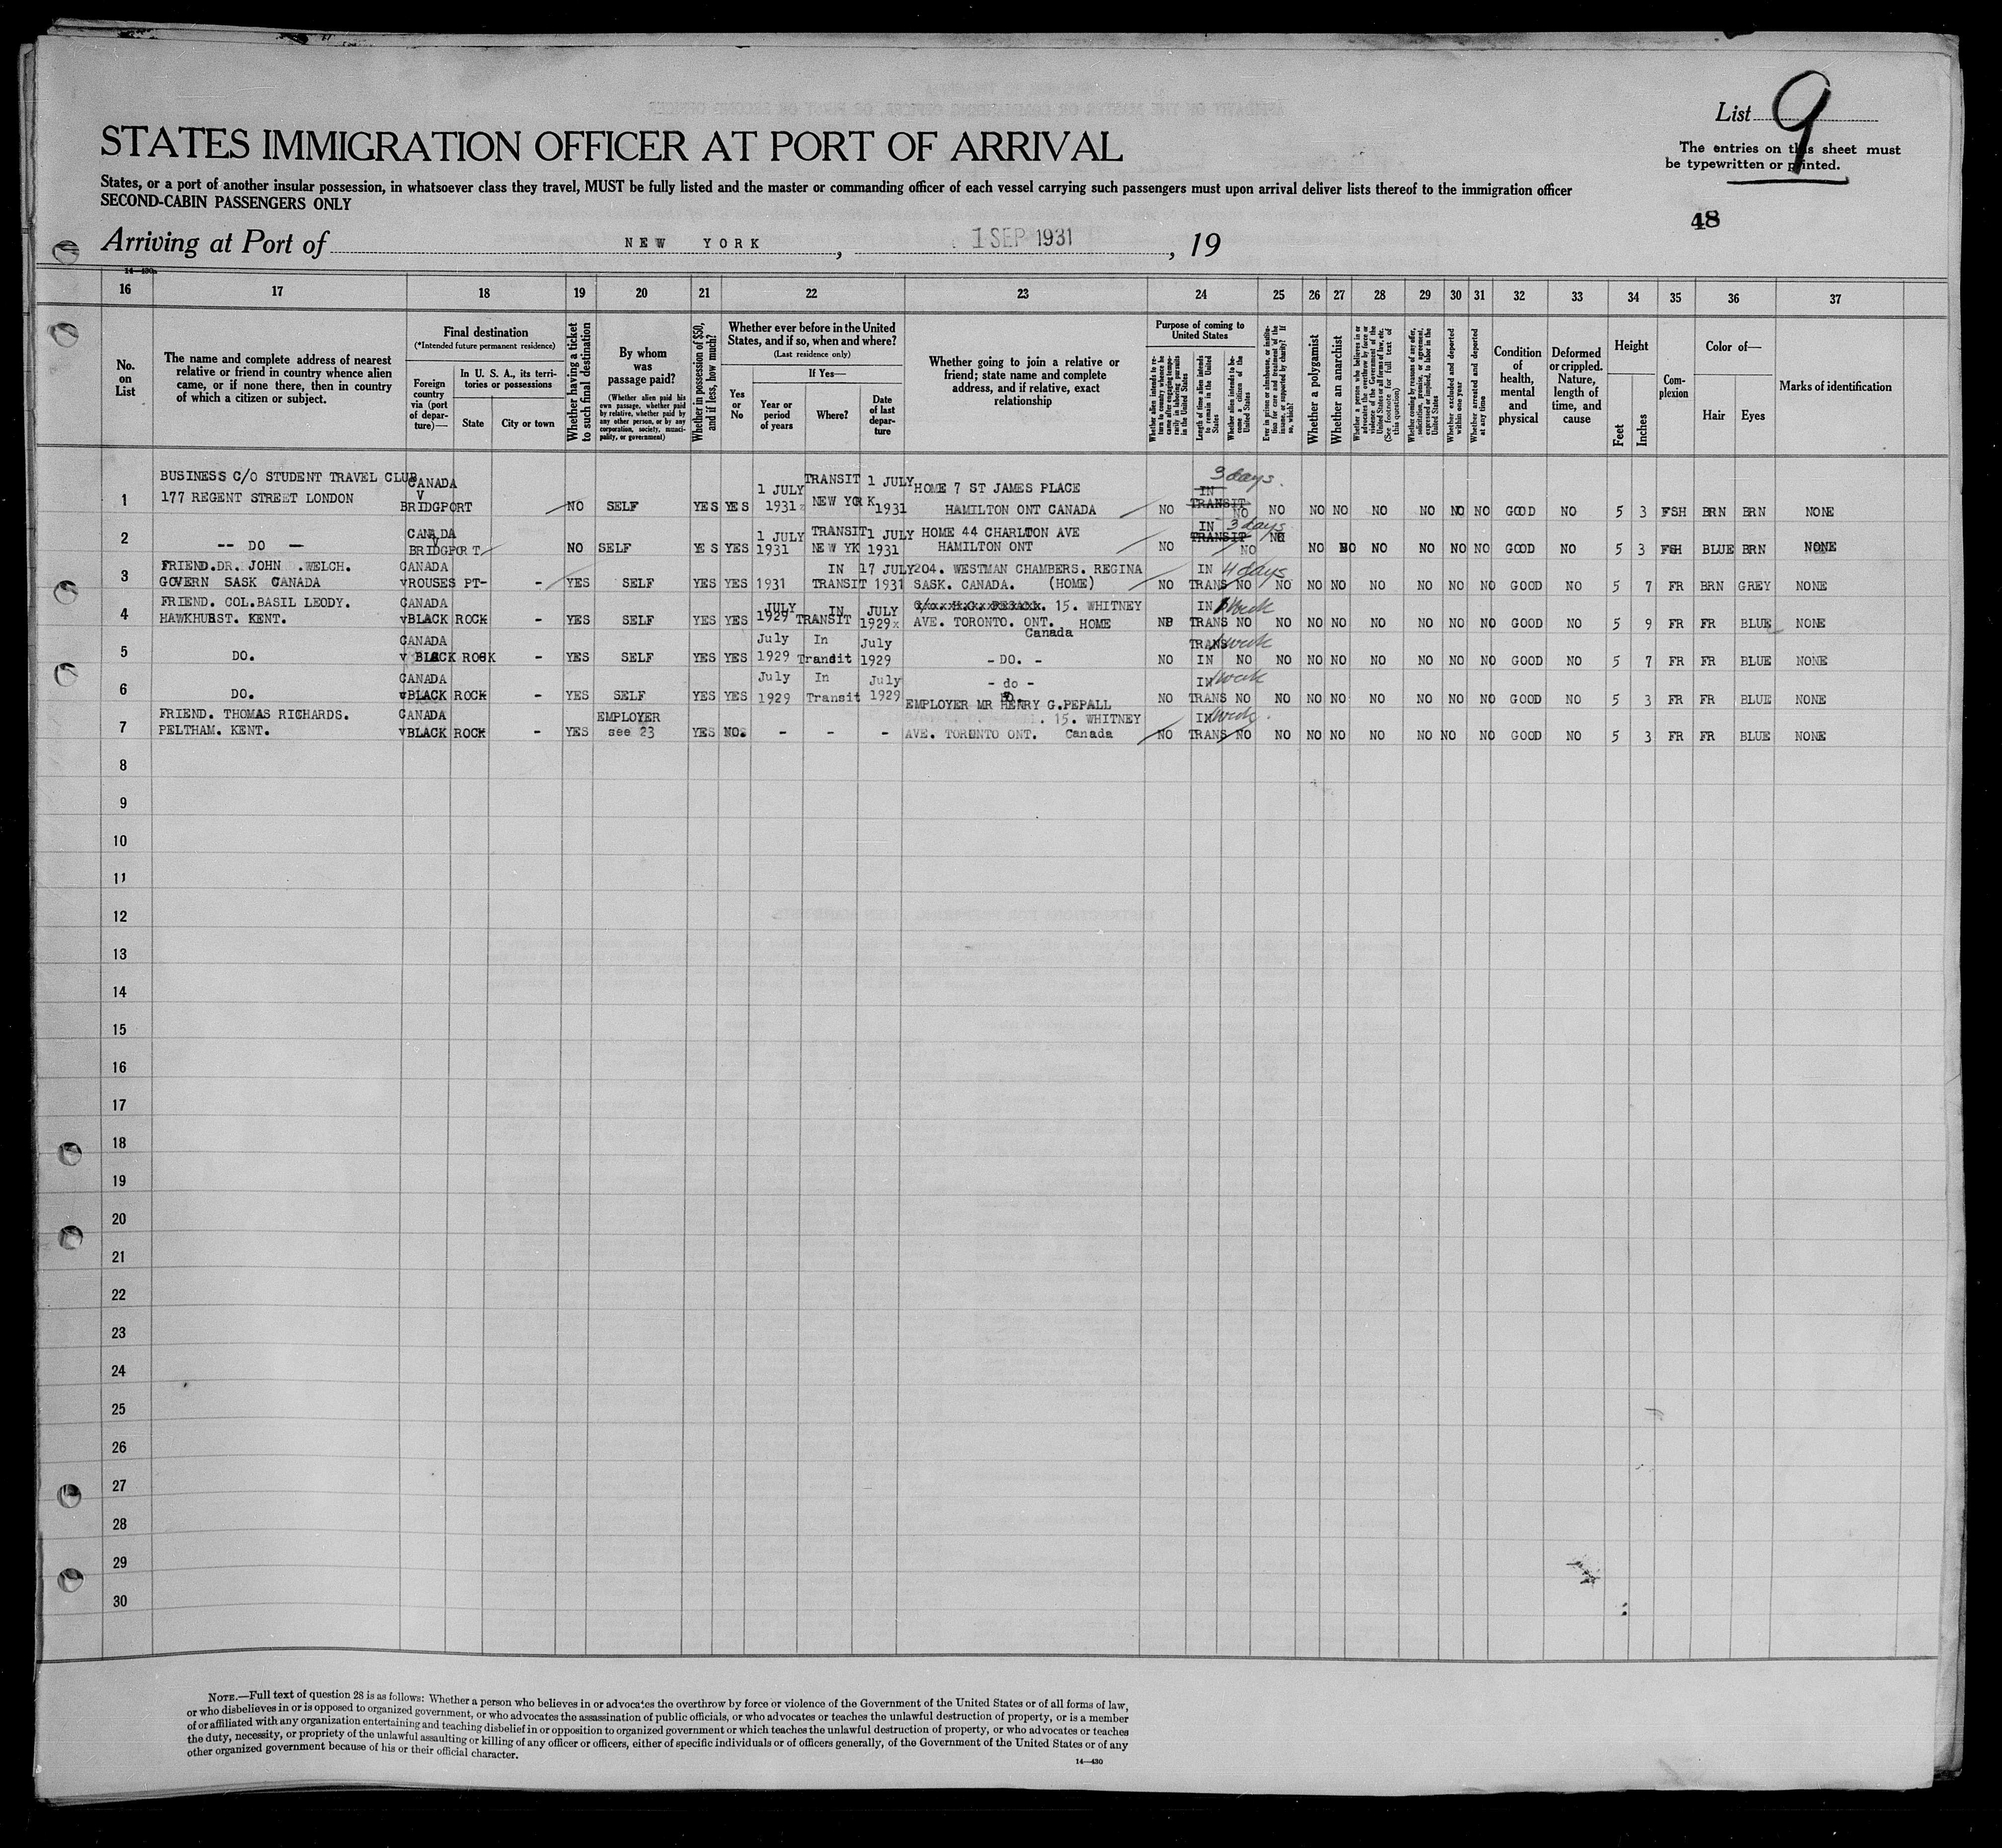 List 9
The entries on this sheet must
be typewritten or printed.
STATES IMMIGRATION OFFICER AT PORT OF ARRIVAL
States, or a port of another insular possession, in whatsoever class they travel, MUST be fully listed and the master or commanding officer of each vessel carrying such passengers must upon arrival deliver lists thereof to the immigration officer
SECOND-CABIN PASSENGERS ONLY
48
Arriving at Port of NEW YORK, 1 SEP 1931, 19
14—430
16 17 18 19 20 21 22 23 24 25 26 27 28 29 30 31 32 33 34 35 36 37
No. on List
The name and complete address of nearest relative or friend in country whence alien came, or if none there, then in country of which a citizen or subject.
Final destination
(*Intended future permanent residence)
Foreign country via (port of departure)—
In U. S. A., its territories or possessions
State
City or town
Whether having a ticket to such final destination
By whom was passage paid?
(Whether alien paid his own passage, whether paid by relative, whether paid by any other person, or by any corporation, society, municipality, or government)
Whether in possession of $50, and if less, how much?
Whether ever before in the United States, and if so, when and where?
(Last residence only)
Yes or No
If Yes—
Year or period of years
Where?
Date of last departure
Whether going to join a relative or friend; state name and complete address, and if relative, exact relationship
Purpose of coming to United States
Whether alien intends to return to country whence he came after engaging temporarily in laboring pursuits in the United States
Length of time alien intends to remain in the United States
Whether alien intends to become a citizen of the United States
Ever in prison or almshouse, or institution for care and treatment of the insane, or supported by charity? If so, which?
Whether a polygamist
Whether an anarchist
Whether a person who believes in or advocates the overthrow by force or violence of the Government of the United States or all forms of law, etc. (See footnote for full text of this question)
Whether coming by reasons of any offer, solicitation, promise, or agreement, expressed or implied, to labor in the United States
Whether excluded and deported within one year
Whether arrested and deported at any time
Condition of health, mental and physical
Deformed or crippled. Nature, length of time, and cause
Height
Feet
Inches
Complexion
Color of—
Hair
Eyes
Marks of identification
BUSINESS C/O STUDENT TRAVEL CLUB CANADA TRANSIT 1 JULY 3 days.
1 177 REGENT STREET LONDON V BRIDGPORT NO SELF YES YES 1 JULY 1931 NEW YORK 1931 HOME 7 ST JAMES PLACE HAMILTON ONT CANADA NO IN TRANSIT NO NO NO NO NO NO NO NO GOOD NO 5 3 FSH BRN BRN NONE
2 -- DO -- CANADA V BRIDGPORT NO SELF YES YES 1 JULY 1931 TRANSIT NEW YK 1 JULY 1931 HOME 44 CHARLTON AVE HAMILTON ONT NO IN TRANSIT 3 days NO NO NO NO NO NO NO NO GOOD NO 5 3 FSH BLUE BRN NONE
FRIEND.DR. JOHN .WELCH. CANADA IN 17 JULY 204. WESTMAN CHAMBERS. REGINA IN 4 days
3 GOVERN SASK CANADA vROUSES PT- - YES SELF YES YES 1931 TRANSIT 1931 SASK. CANADA. (HOME) NO TRANS NO NO NO NO NO NO NO NO GOOD NO 5 7 FR BRN GREY NONE
FRIEND. COL.BASIL LEODY. CANADA JULY IN JULY 15. WHITNEY IN 1 week
4 HAWKHURST. KENT. vBLACK ROCK - YES SELF YES YES 1929 TRANSIT 1929 AVE. TORONTO. ONT. HOME NO TRANS NO NO NO NO NO NO NO NO GOOD NO 5 9 FR FR BLUE NONE
Canada
CANADA July In July TRANS 1 week
5 DO. v BLACK ROCK - YES SELF YES YES 1929 Transit 1929 - DO. - NO IN NO NO NO NO NO NO NO NO GOOD NO 5 7 FR FR BLUE NONE
CANADA July In July - do - IN 1 week
6 DO. vBLACK ROCK - YES SELF YES YES 1929 Transit 1929 NO TRANS NO NO NO NO NO NO NO NO GOOD NO 5 3 FR FR BLUE NONE
EMPLOYER MR HENRY G.PEPALL
FRIEND. THOMAS RICHARDS. CANADA EMPLOYER . 15. WHITNEY IN 1 week.
7 PELTHAM. KENT. vBLACK ROCK - YES see 23 YES NO. - - - AVE. TORONTO ONT. Canada NO TRANS NO NO NO NO NO NO NO NO GOOD NO 5 3 FR FR BLUE NONE
8
9
10
11
12
13
14
15
16
17
18
19
20
21
22
23
24
25
26
27
28
29
30
NOTE.—Full text of question 28 is as follows: Whether a person who believes in or advocates the overthrow by force or violence of the Government of the United States or of all forms of law,
or who disbelieves in or is opposed to organized government, or who advocates the assassination of public officials, or who advocates or teaches the unlawful destruction of property, or is a member
of or affiliated with any organization entertaining and teaching disbelief in or opposition to organized government or which teaches the unlawful destruction of property, or who advocates or teaches
the duty, necessity, or propriety of the unlawful assaulting or killing of any officer or officers, either of specific individuals or of officers generally, of the Government of the United States or of any
other organized government because of his or their official character.
14—430